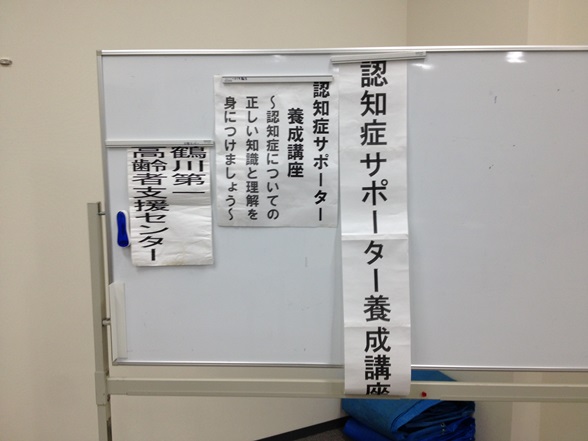 認知症サポーター養成講座
認知症サポーター
養成講座
～認知症についての
正しい知識と理解を
身につけましょう～
鶴川第
高齢者支援センター